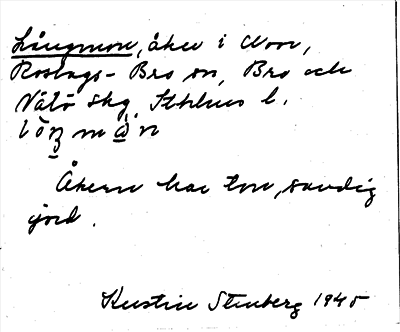 Långmon, åker i Norr,
Roslags-Bro sn, Bro och
Vätö skg. Sthlms l.
Åkern har torr, sandig
jord.
Kerstin Stenberg 1945